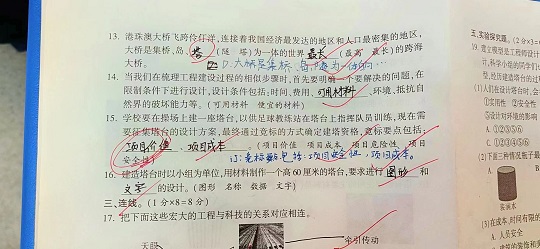 13. 港珠澳大桥飞跨伶仃洋,连接着我国经济最发达的地区和人口最密集的地区,
大桥是集桥、岛、塔(隧 塔)为一体的世界最长(最高 最长)的跨海
大桥。
14. 当我们在梳理工程建设过程的相似步骤时,首先要明确一个要解决的问题,在
限制条件下进行设计,设计条件包括:时间、费用、可用材料、环境、抵抗自
然界的破坏能力等。(可用材料 便宜的材料)
15. 学校要在操场上建一座塔台,以供足球教练站在塔台上指挥队员训练,现在需
要征集塔台的设计方案,最终通过竞标的方式确定建塔资格,竞标要点包括:
项目价值、项目成本。(项目价值 项目成本 项目危险性 项目
安全性)
16. 建造塔台时以小组为单位,用材料制作一个高60厘米的塔台,要求进行图形和
文字的设计。(图形 名称 数据 文字)
三、连线。(1分×8=8分)
17. 把下面这些宏大的工程与科技的关系对应相连。
天眼
牵引传动
五、实验探究题。
19. 建立模型是工程师设计
(1)
①实用性 ②安全性
⑤设计对环境的影响
A. ①②③⑤⑥
C. ①②③④⑥
装满水
A. 人员安全